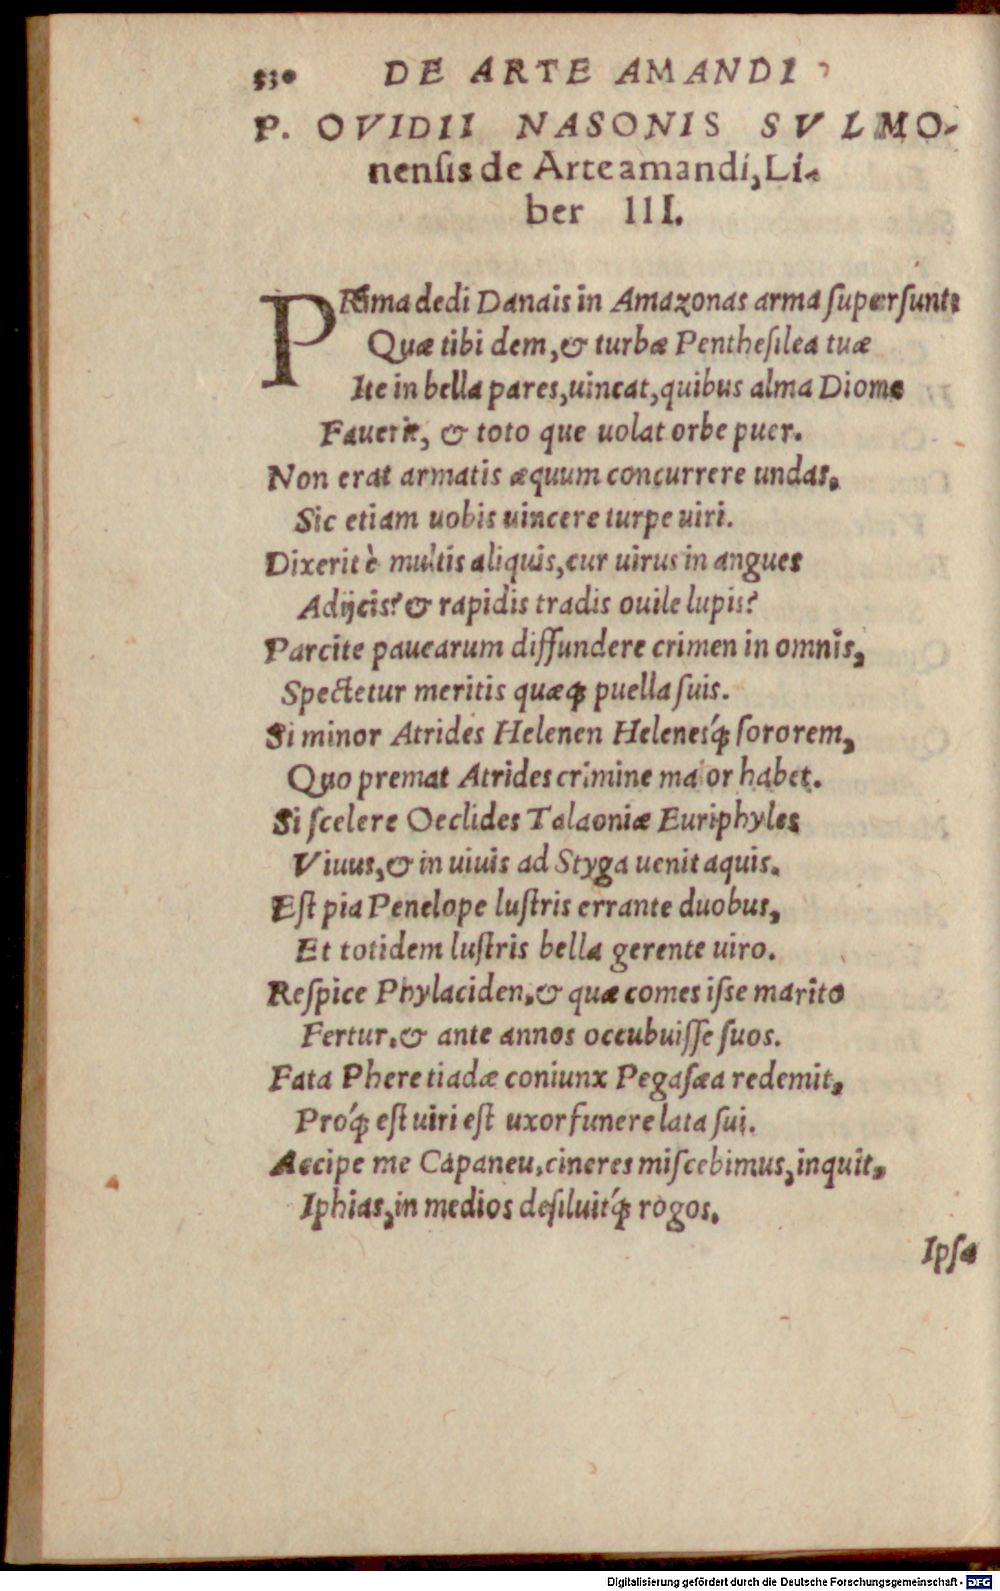 530 DE ARTE AMANDI
P. OVIDII NASONIS SVLMO-
nenſis de Arte amandi, Li-
ber III.
PRima dedi Danais in Amazonas arma ſuperſunt:
Quæ tibi dem, & turbæ Pentheſilea tuæ
Ite in bella pares, uincat, quibus alma Diome
Fauerit, & toto que uolat orbe puer.
Non erat armatis æquum concurrere undas.
Sic etiam uobis uincere turpe uiri.
Dixerit è multis aliquis, cur uirus in angues
Adijcis? & rapidis tradis ouile lupis?
Parcite paucarum diffundere crimen in omnîs,
Spectetur meritis quæꝙ puella ſuis.
Si minor Atrides Helenen Helenesq́ꝫ ſororem,
Quo premat Atrides crimine ma or habet.
Si ſcelere Oeclides Talaoniæ Euriphyles
Viuus, & in uiuis ad Styga uenit aquis.
Eſt pia Penelope luſtris errante duobus,
Et totidem luſtris bella gerente uiro.
Reſpice Phylaciden, & quæ comes iſſe marito
Fertur, & ante annos occubuiſſe ſuos.
Fata Pheretiadæ coniunx Pegaſæa redemit,
Proq́ꝫ eſt uiri eſt uxor funere lata ſui.
Accipe me Capaneu, cineres miſcebimus, inquit,
Iphias, in medios deſiluitq́ꝫ rogos.
Ipſa
Digitalisierung gefördert durch die Deutsche Forschungsgemeinschaft - DFG